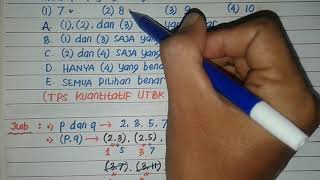 (1) 7 (2) 8 (3) 9 (4) 10
A. (1), (2), dan (3)
B. (1) dan (3) SAJA yang
C. (2) dan (4) SAJA yang
D. HANYA (4) yang be
E. SEMUA PILIHAN benar
(TPS KUANTITATIF UTBK
Jwb : •) p dan q → 2, 3, 5, 7
•) (P.q) → (2,3), (2,5),
5 7
(3,7) (3,11)